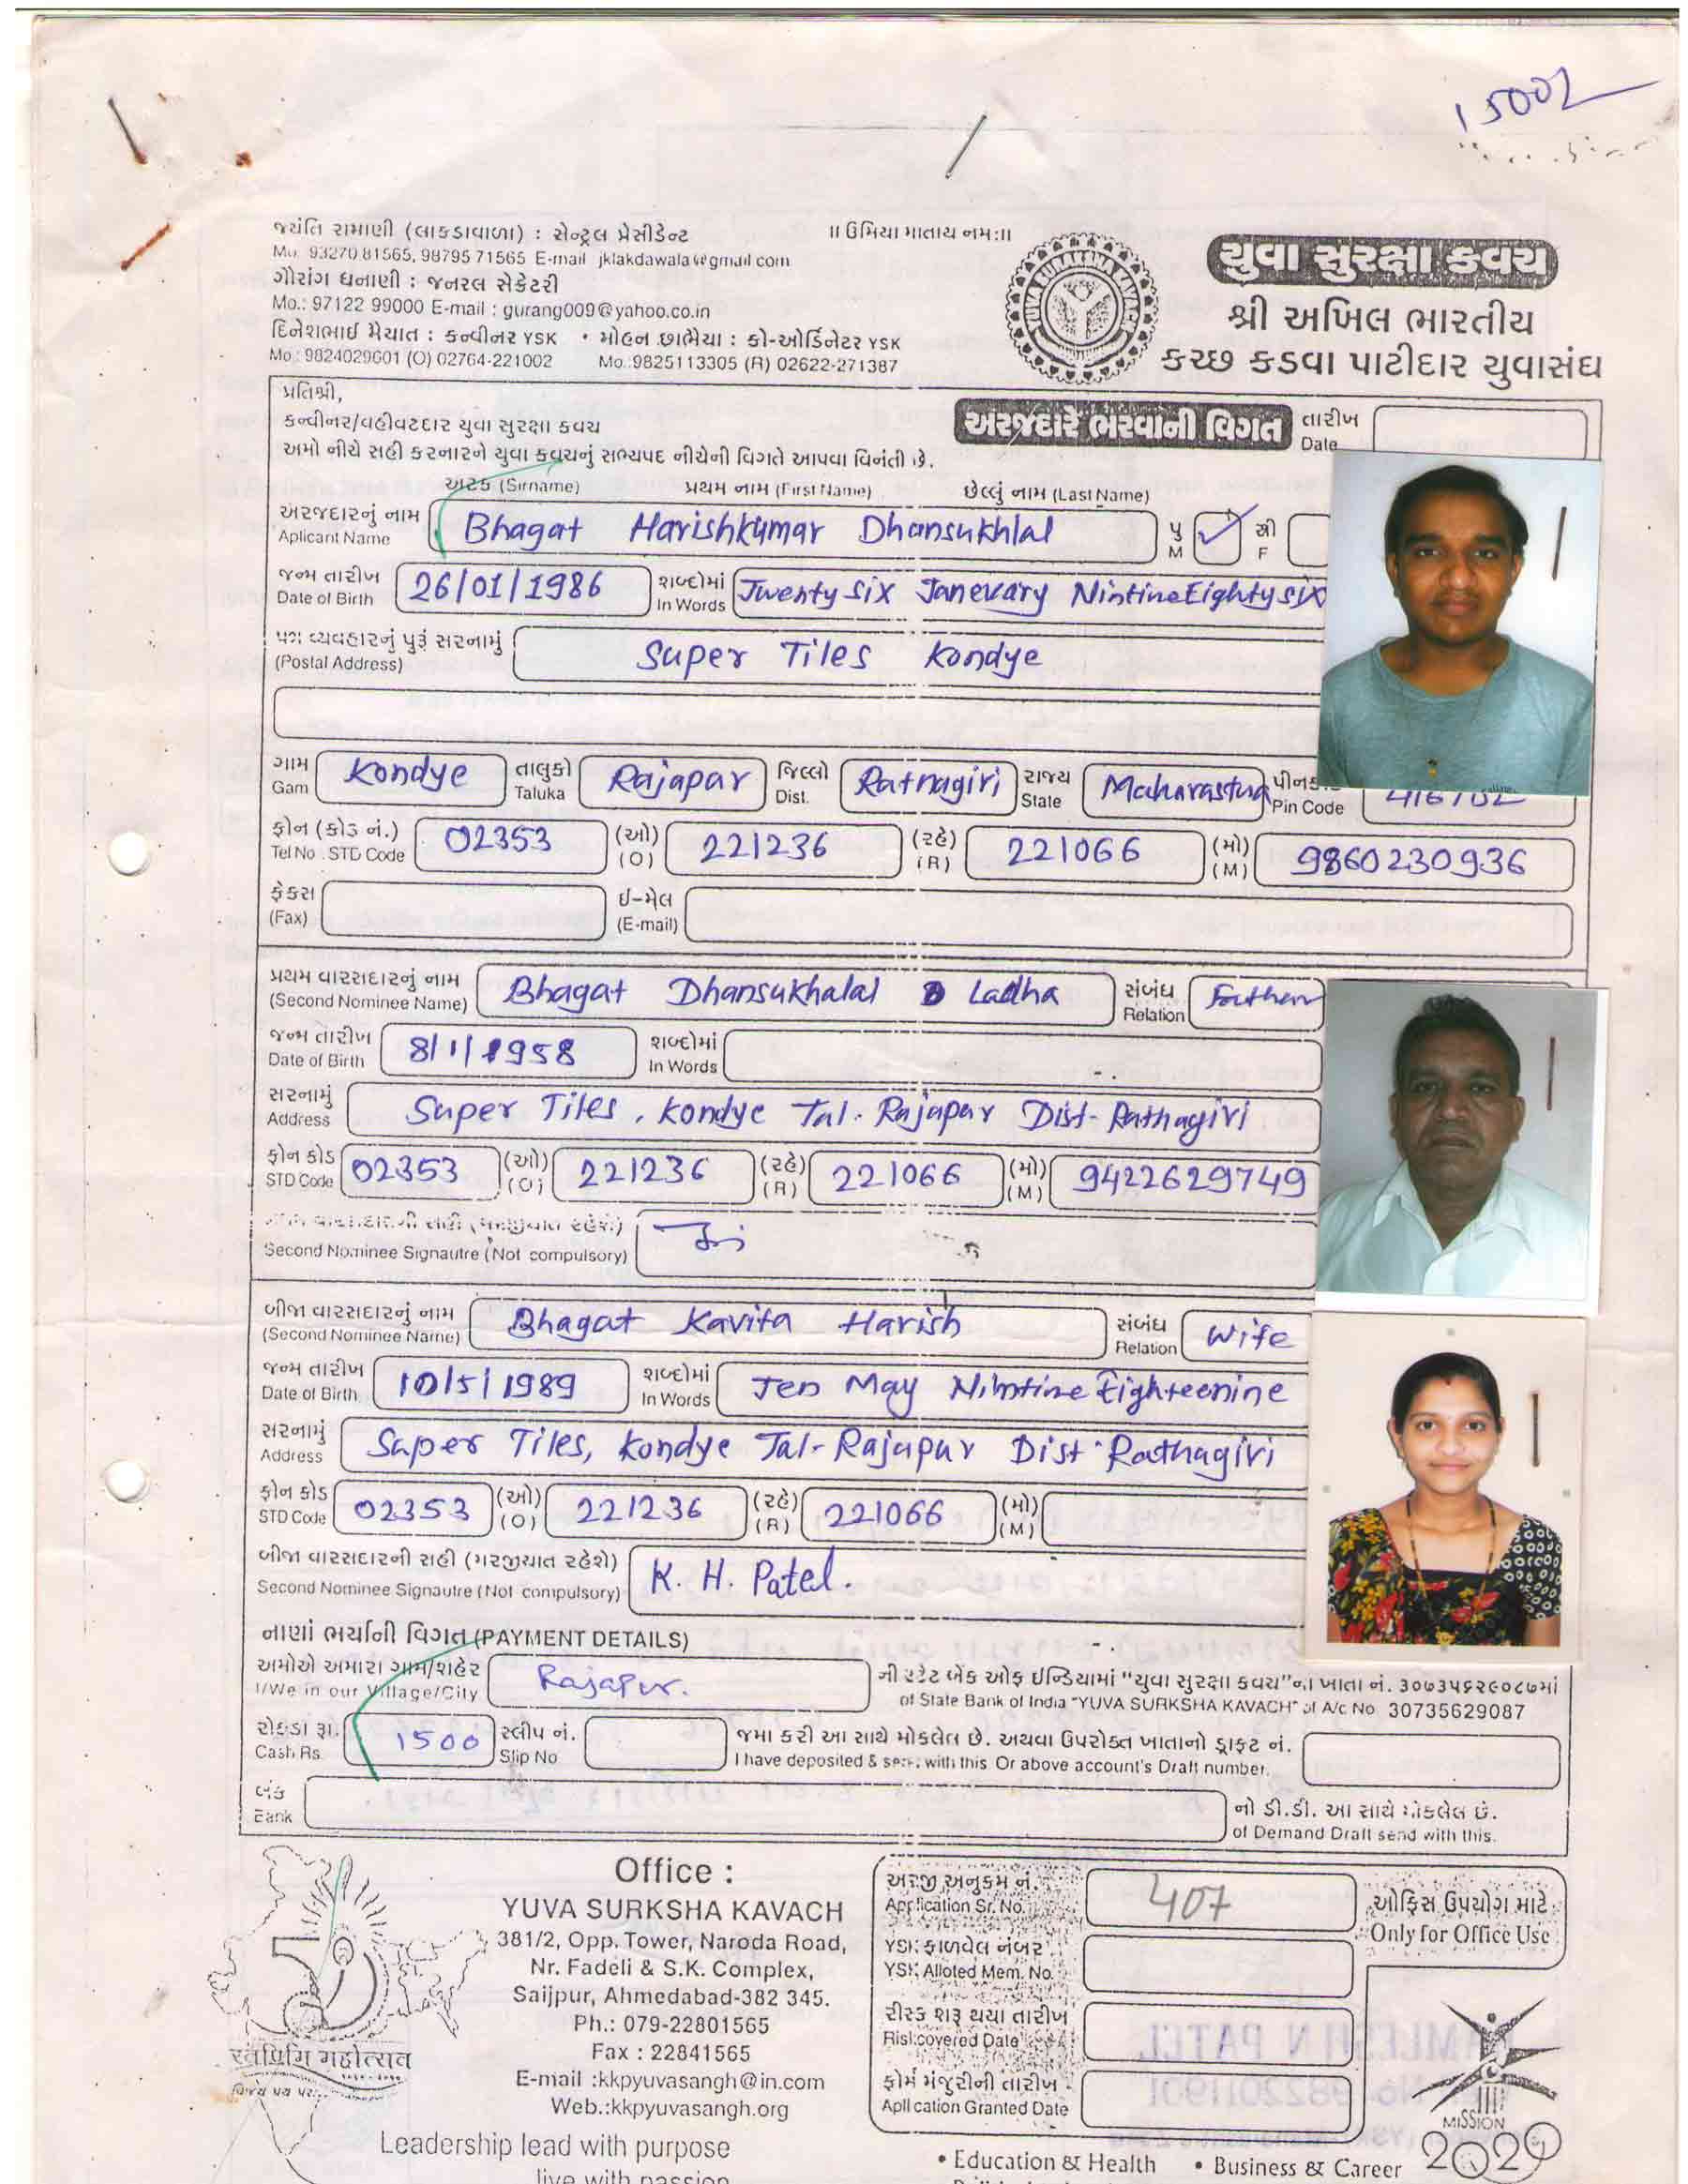 1500/-
જયંતિ રામાણી (લાકડાવાળા) : સેન્ટ્રલ પ્રેસીડેન્ટ
Mo. 93270 81565, 98795 71565 E-mail jklakdawala@gmail.com
ગૌરાંગ ધનાણી : જનરલ સેક્રેટરી
Mo.: 97122 99000 E-mail : gurang009@yahoo.co.in
દિનેશભાઈ મૈયાત : કન્વીનર YSK • મોહન છાભૈયા : કો-ઓર્ડિનેટર YSK
Mo.: 9824029601 (O) 02764-221002 Mo.:9825113305 (R) 02622-271387
॥ ઉમિયા માતાય નમઃ॥
YUVA SURAKSHA KAVACH
યુવા સુરક્ષા કવચ
શ્રી અખિલ ભારતીય
કચ્છ કડવા પાટીદાર યુવાસંઘ
પ્રતિશ્રી,
કન્વીનર/વહીવટદાર યુવા સુરક્ષા કવચ
અરજદારે ભરવાની વિગત
તારીખ
Date
અમો નીચે સહી કરનારને યુવા કવચનું સભ્યપદ નીચેની વિગતે આપવા વિનંતી છે.
અટક (Sirname) પ્રથમ નામ (First Name) છેલ્લું નામ (Last Name)
અરજદારનું નામ
Aplicant Name Bhagat Harishkumar Dhansukhlal પુ M ✓ સ્રી F
જન્મ તારીખ
Date of Birth 26/01/1986 શબ્દોમાં In Words Twenty six Janevary Nintine Eighty six
પત્ર વ્યવહારનું પુરૂં સરનામું
(Postal Address) Super Tiles Kondye
ગામ Gam Kondye તાલુકો Taluka Rajapar જિલ્લો Dist. Ratnagiri રાજ્ય State Maharastra Pin Code
ફોન (કોડ નં.)
Tel No. STD Code 02353 (ઓ) (O) 221236 (રહે) (R) 221066 (મો) (M) 9860230936
ફેકસ
(Fax)
ઈ-મેલ
(E-mail)
પ્રથમ વારસદારનું નામ
(Second Nominee Name) Bhagat Dhansukhalal Ladha સંબંધ Relation Father
જન્મ તારીખ
Date of Birth 8/1/1958 શબ્દોમાં In Words
સરનામું
Address Super Tiles, Kondye Tal. Rajapar Dist- Rathagiri
ફોન કોડ
STD Code 02353 (ઓ) (O) 221236 (રહે) (R) 221066 (મો) (M) 9422629749
Second Nominee Signautre (Not compulsory)
બીજા વારસદારનું નામ
(Second Nominee Name) Bhagat Kavita Harish સંબંધ Relation Wife
જન્મ તારીખ
Date of Birth 10/5/1989 શબ્દોમાં In Words Ten May Nimtine Eighteenine
સરનામું
Address Super Tiles, Kondye Tal- Rajapur Dist Rathagiri
ફોન કોડ
STD Code 02353 (ઓ) (O) 221236 (રહે) (R) 221066 (મો) (M)
બીજા વારસદારની સહી (મરજીયાત રહેશે)
Second Nominee Signautre (Not compulsory) K. H. Patel.
નાણાં ભર્યાની વિગત (PAYMENT DETAILS)
અમોએ અમારા ગામ/શહેર
I/We in our Village/City Rajapur.
ની સ્ટેટ બેંક ઓફ ઈન્ડિયામાં "યુવા સુરક્ષા કવચ"ના ખાતા નં. ૩૦૭૩૫૬૨૯૦૮૭માં
of State Bank of India "YUVA SURKSHA KAVACH" of A/c No 30735629087
રોકડા રૂા.
Cash Rs. 1500 સ્લીપ નં. Slip No
જમા કરી આ સાથે મોકલેલ છે. અથવા ઉપરોક્ત ખાતાનો ડ્રાફ્ટ નં.
I have deposited & send with this Or above account's Draft number.
બેંક
Bank
નો ડી.ડી. આ સાથે મોકલેલ છે.
of Demand Draft send with this.
Office :
YUVA SURKSHA KAVACH
381/2, Opp. Tower, Naroda Road,
Nr. Fadeli & S.K. Complex,
Saijpur, Ahmedabad-382 345.
Ph.: 079-22801565
Fax : 22841565
E-mail :kkpyuvasangh@in.com
Web.:kkpyuvasangh.org
અરજી અનુક્રમ નં.
Application Sr. No. 407
YSK ફાળવેલ નંબર
YSK Alloted Mem. No.
રીસ્ક શરૂ થયા તારીખ
Risk covered Date
ફોર્મ મંજુરીની તારીખ
Apllication Granted Date
ઓફિસ ઉપયોગ માટે
Only for Office Use
50
MISSION
2020
Leadership lead with purpose
live with passion
• Education & Health • Business & Career